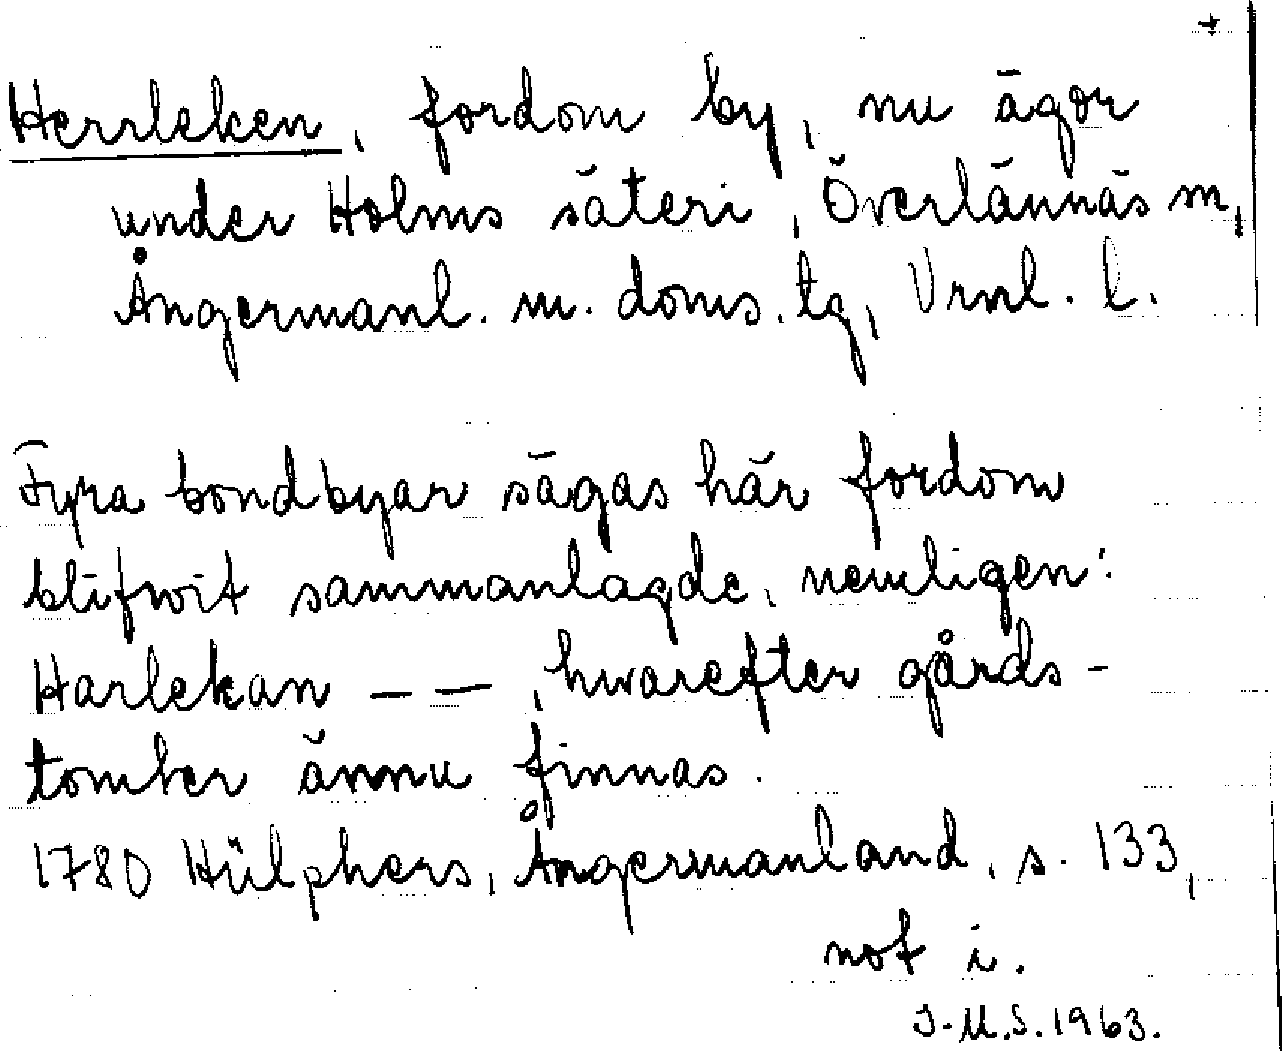 +
Herrleken, fordom by, nu ägor
under Holms säteri, Överlännäs sn,
Ångermanl. m. doms. tg, Vrnl. l.
Fyra bondbyar sägas här fordom
blifwit sammanlagde, nemligen:
Harlekan – – , hwarefter gårds-
tomter ännu finnas.
1780 Hülphers, Ångermanland, s. 133,
not i.
J.M.S. 1963.